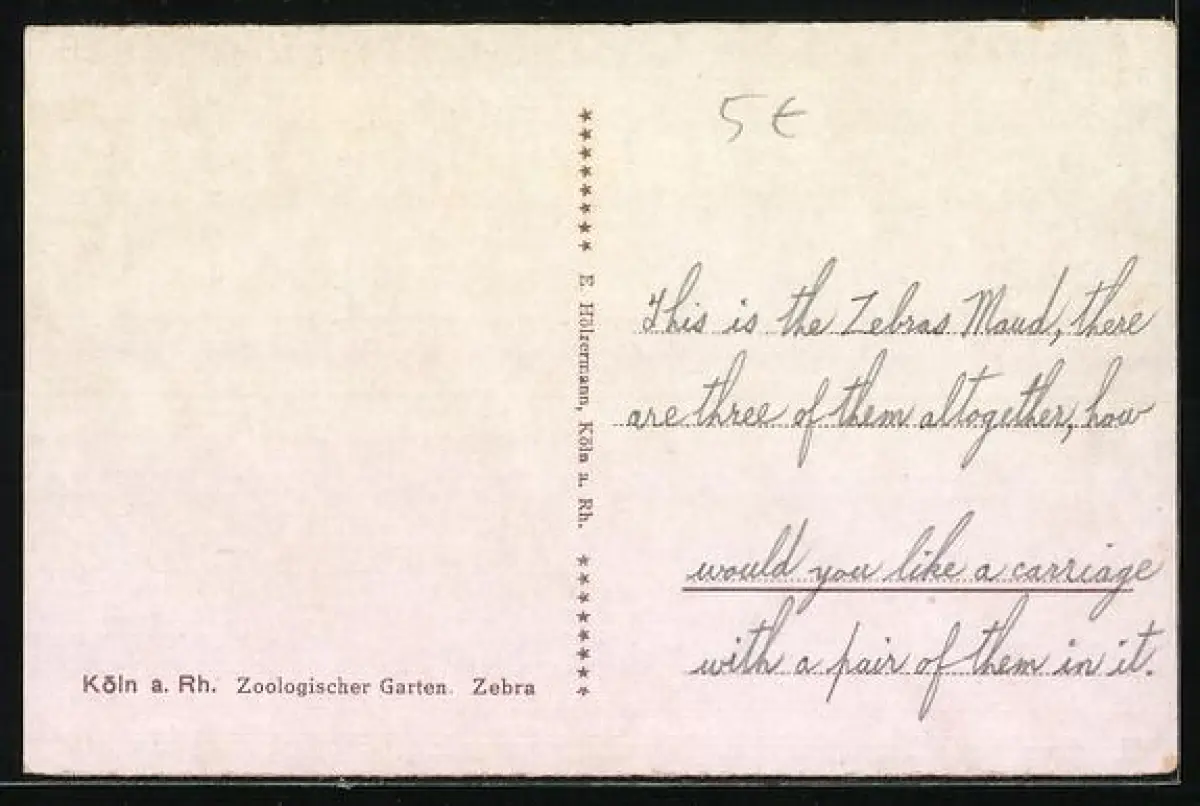 5 €
This is the Zebras Maud, there
are three of them altogether, how
would you like a carriage
with a pair of them in it.
E. Hölzermann, Köln a. Rh.
Köln a. Rh. Zoologischer Garten. Zebra